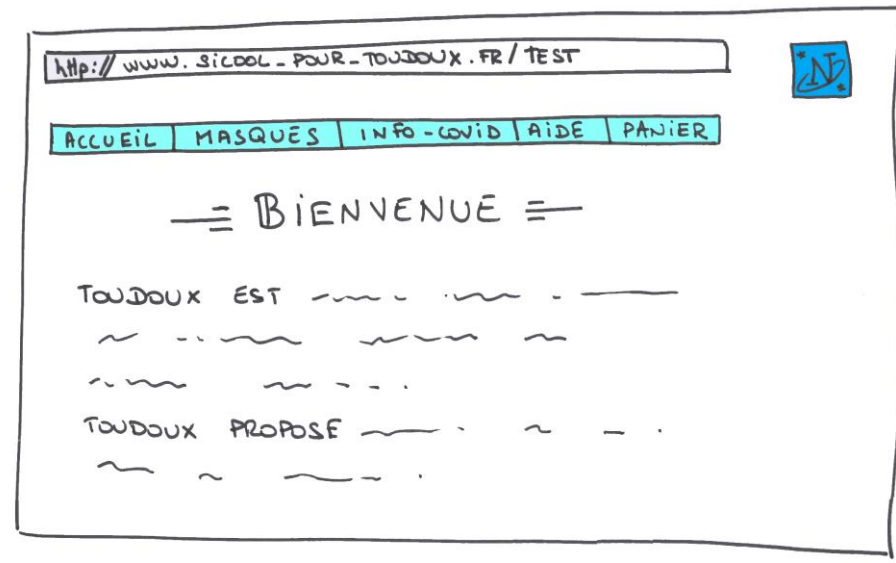 http:// www.sicool_pour_toudoux.fr/TEST
N
ACCUEIL MASQUES INFO-COVID AIDE PANIER
BIENVENUE
TOUDOUX EST
TOUDOUX PROPOSE